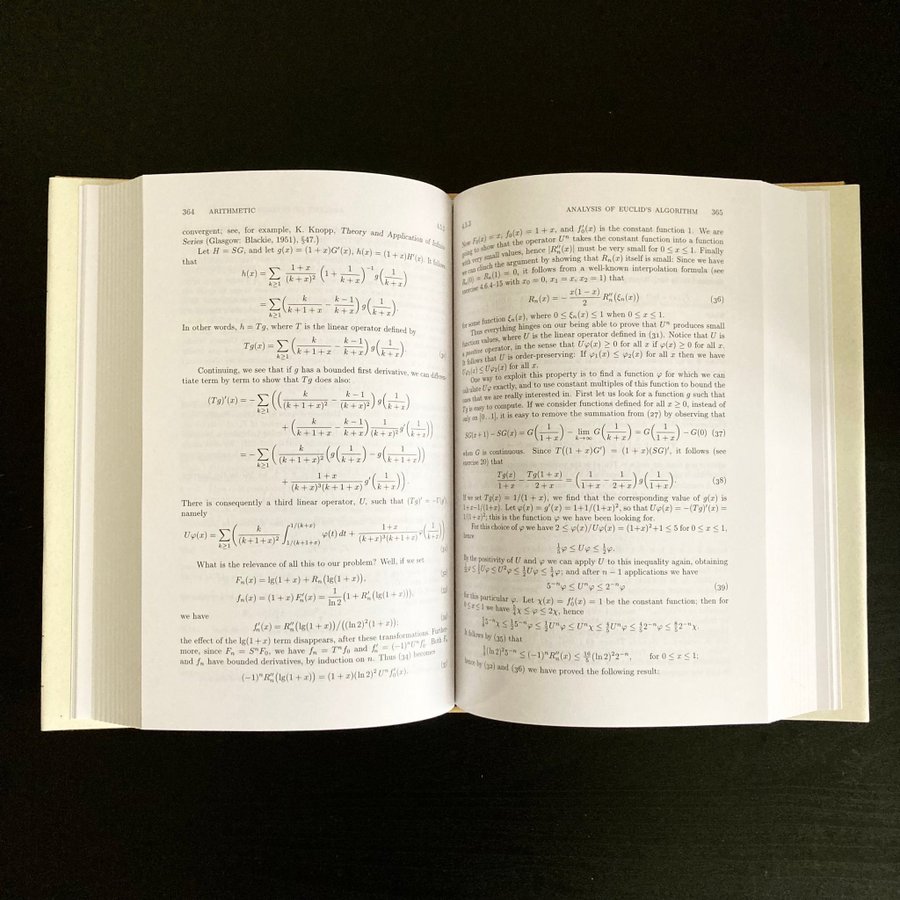 364 ARITHMETIC 4.5.3
convergent; see, for example, K. Knopp, Theory and Application of Infinite
Series (Glasgow: Blackie, 1951), §47.)
Let H = SG, and let g(x) = (1+x)G′(x), h(x) = (1+x)H′(x). It follows
that
h(x) = ∑_{k≥1} (1+x)/(k+x)² (1 + 1/(k+x))⁻¹ g(1/(k+x))
= ∑_{k≥1} (k/(k+1+x) − (k−1)/(k+x)) g(1/(k+x)).
In other words, h = Tg, where T is the linear operator defined by
Tg(x) = ∑_{k≥1} (k/(k+1+x) − (k−1)/(k+x)) g(1/(k+x)).
Continuing, we see that if g has a bounded first derivative, we can differen-
tiate term by term to show that Tg does also:
(Tg)′(x) = −∑_{k≥1} ((k/(k+1+x)² − (k−1)/(k+x)²) g(1/(k+x))
+ (k/(k+1+x) − (k−1)/(k+x)) 1/(k+x)² g′(1/(k+x)))
= −∑_{k≥1} (k/(k+1+x)² (g(1/(k+x)) − g(1/(k+1+x)))
+ (1+x)/((k+x)³(k+1+x)) g′(1/(k+x))).
There is consequently a third linear operator, U, such that (Tg)′ = −U(g′),
namely
Uφ(x) = ∑_{k≥1} (k/(k+1+x)² ∫_{1/(k+1+x)}^{1/(k+x)} φ(t) dt + (1+x)/((k+x)³(k+1+x)) φ(1/(k+x))).
What is the relevance of all this to our problem? Well, if we set
Fₙ(x) = lg(1+x) + Rₙ(lg(1+x)),
fₙ(x) = (1+x) Fₙ′(x) = 1/ln 2 (1 + Rₙ′(lg(1+x))),
we have
fₙ′(x) = Rₙ″(lg(1+x))/((ln 2)²(1+x));
the effect of the lg(1+x) term disappears, after these transformations. Further-
more, since Fₙ = SⁿF₀, we have fₙ = Tⁿf₀ and fₙ′ = (−1)ⁿUⁿf₀′. Both Fₙ
and fₙ have bounded derivatives, by induction on n. Thus (34) becomes
(−1)ⁿRₙ″(lg(1+x)) = (1+x)(ln 2)² Uⁿf₀′(x).
4.5.3 ANALYSIS OF EUCLID'S ALGORITHM 365
Now F₀(x) = x, f₀(x) = 1+x, and f₀′(x) is the constant function 1. We are
going to show that the operator Uⁿ takes the constant function into a function
with very small values, hence |Rₙ″(x)| must be very small for 0 ≤ x ≤ 1. Finally
we can clinch the argument by showing that Rₙ(x) itself is small: Since we have
Rₙ(0) = Rₙ(1) = 0, it follows from a well-known interpolation formula (see
exercise 4.6.4–15 with x₀ = 0, x₁ = x, x₂ = 1) that
Rₙ(x) = −x(1−x)/2 Rₙ″(ξₙ(x)) (36)
for some function ξₙ(x), where 0 ≤ ξₙ(x) ≤ 1 when 0 ≤ x ≤ 1.
Thus everything hinges on our being able to prove that Uⁿ produces small
function values, where U is the linear operator defined in (31). Notice that U is
a positive operator, in the sense that Uφ(x) ≥ 0 for all x if φ(x) ≥ 0 for all x.
It follows that U is order-preserving: If φ₁(x) ≤ φ₂(x) for all x then we have
Uφ₁(x) ≤ Uφ₂(x) for all x.
One way to exploit this property is to find a function φ for which we can
calculate Uφ exactly, and to use constant multiples of this function to bound the
ones that we are really interested in. First let us look for a function g such that
Tg is easy to compute. If we consider functions defined for all x ≥ 0, instead of
only on [0..1], it is easy to remove the summation from (27) by observing that
SG(x+1) − SG(x) = G(1/(1+x)) − lim_{k→∞} G(1/(k+x)) = G(1/(1+x)) − G(0) (37)
when G is continuous. Since T((1+x)G′) = (1+x)(SG)′, it follows (see
exercise 20) that
Tg(x)/(1+x) − Tg(1+x)/(2+x) = (1/(1+x) − 1/(2+x)) g(1/(1+x)). (38)
If we set Tg(x) = 1/(1+x), we find that the corresponding value of g(x) is
1+x−1/(1+x). Let φ(x) = g′(x) = 1+1/(1+x)², so that Uφ(x) = −(Tg)′(x) =
1/(1+x)²; this is the function φ we have been looking for.
For this choice of φ we have 2 ≤ φ(x)/Uφ(x) = (1+x)²+1 ≤ 5 for 0 ≤ x ≤ 1,
hence
⅕φ ≤ Uφ ≤ ½φ.
By the positivity of U and φ we can apply U to this inequality again, obtaining
1/25 φ ≤ ⅕Uφ ≤ U²φ ≤ ½Uφ ≤ ¼φ; and after n − 1 applications we have
5⁻ⁿφ ≤ Uⁿφ ≤ 2⁻ⁿφ (39)
for this particular φ. Let χ(x) = f₀′(x) = 1 be the constant function; then for
0 ≤ x ≤ 1 we have 5/4 χ ≤ φ ≤ 2χ, hence
5/8 5⁻ⁿχ ≤ ½5⁻ⁿφ ≤ ½Uⁿφ ≤ Uⁿχ ≤ ⅘Uⁿφ ≤ ⅘2⁻ⁿφ ≤ 8/5 2⁻ⁿχ.
It follows by (35) that
⅝(ln 2)²5⁻ⁿ ≤ (−1)ⁿRₙ″(x) ≤ 16/5 (ln 2)²2⁻ⁿ, for 0 ≤ x ≤ 1;
hence by (32) and (36) we have proved the following result: